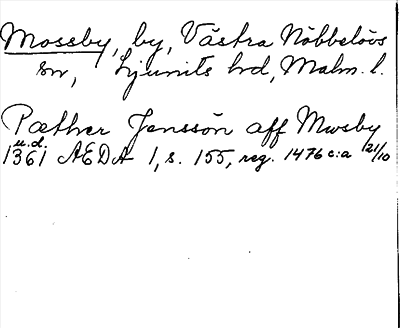 Mossby, by, Västra Nöbbelövs
sn, Ljunits hd, Malm. l.
Pæther Jenssøn aff Mwsby
u.d.
1361 ÆDA 1, s. 155, reg. 1476 c:a 21/10